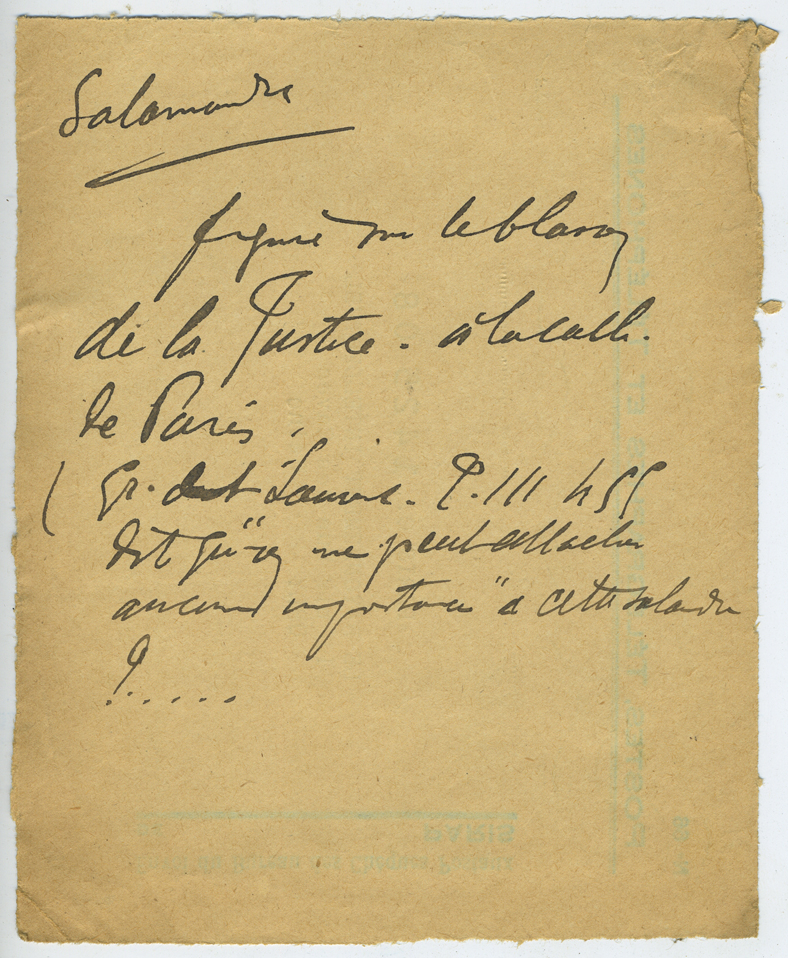 Salamandre
figure sur le blason
de la Justice - à la cath.
de Paris.
( Gr. de St Laurent. P. III 455
dit qu'"on ne peut attacher
aucune importance" à cette salandre
!.....